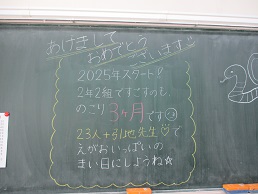 あけまして
おめでとう
ございます
2025年スタート♡
2年2組ですごすのも、
のこり3ヶ月です
23人+引地先生♡で
えがおいっぱいの
まい日にしようね☆